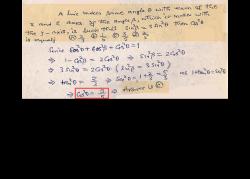 A line makes same angle θ with each of the
x and z axes. If the angle β, which it makes with
the y-axis, is such that sin²β = 3 sin²θ then cos²θ
is equal
Since cos²θ + cos²β + cos²θ = 1
⇒ 1 - cos²β = 2cos²θ ⇒ sin²β = 2cos²θ
⇒ 3 sin²θ = 2cos²θ (sin²β = 3 sin²θ)
⇒ tan²θ = 2/3 ⇒ sec²θ = 1 + 2/3 = 5/3
⇒ cos²θ = 3/5 ⇒ Answer is